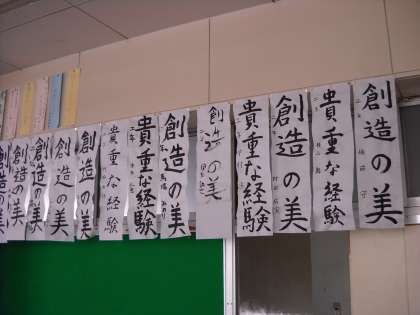 創造の美
貴重な経験
創造の美
貴重な経験
創造の美
創造の美
貴重な経験
貴重な経験
創造の美
創造の美
創造の美
創造の美
創造の美